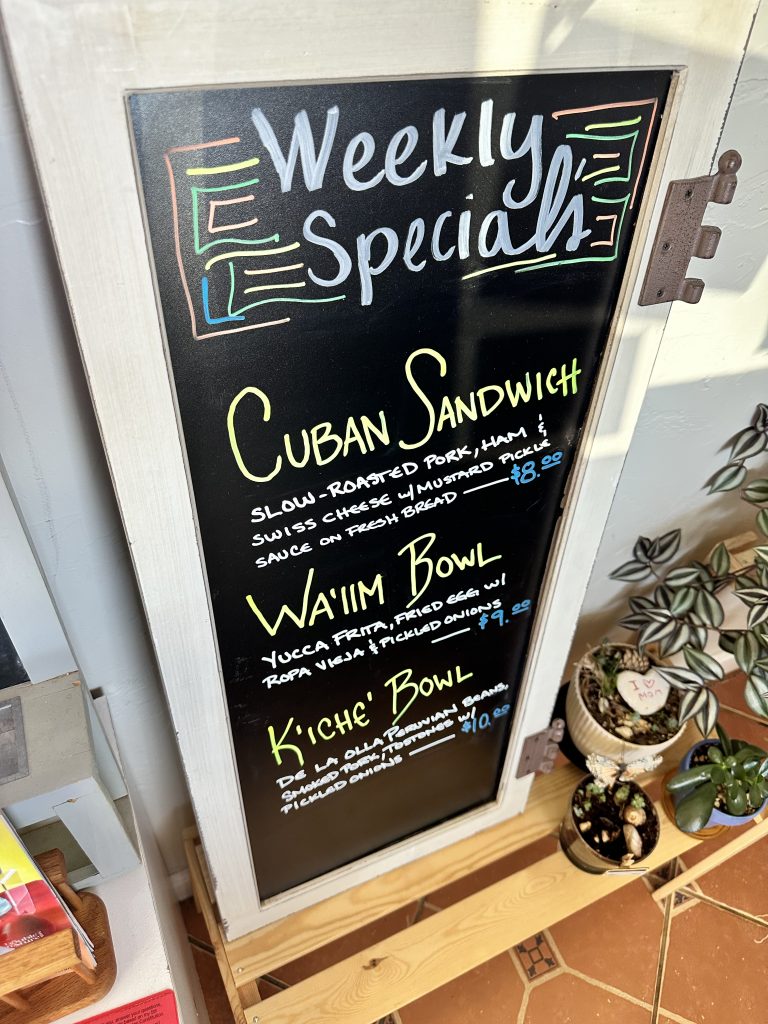 Weekly
Specials
CUBAN SANDWICH
SLOW-ROASTED PORK, HAM &
SWISS CHEESE W/MUSTARD PICKLE
SAUCE ON FRESH BREAD — $8.00
WA'IIM BOWL
YUCCA FRITA, FRIED EGG W/
ROPA VIEJA & PICKLED ONIONS — $9.00
K'ICHE' BOWL
DE LA OLLA PERUVIAN BEANS,
SMOKED PORK, TOSTONES W/
PICKLED ONIONS — $10.00
I ♡
Mom